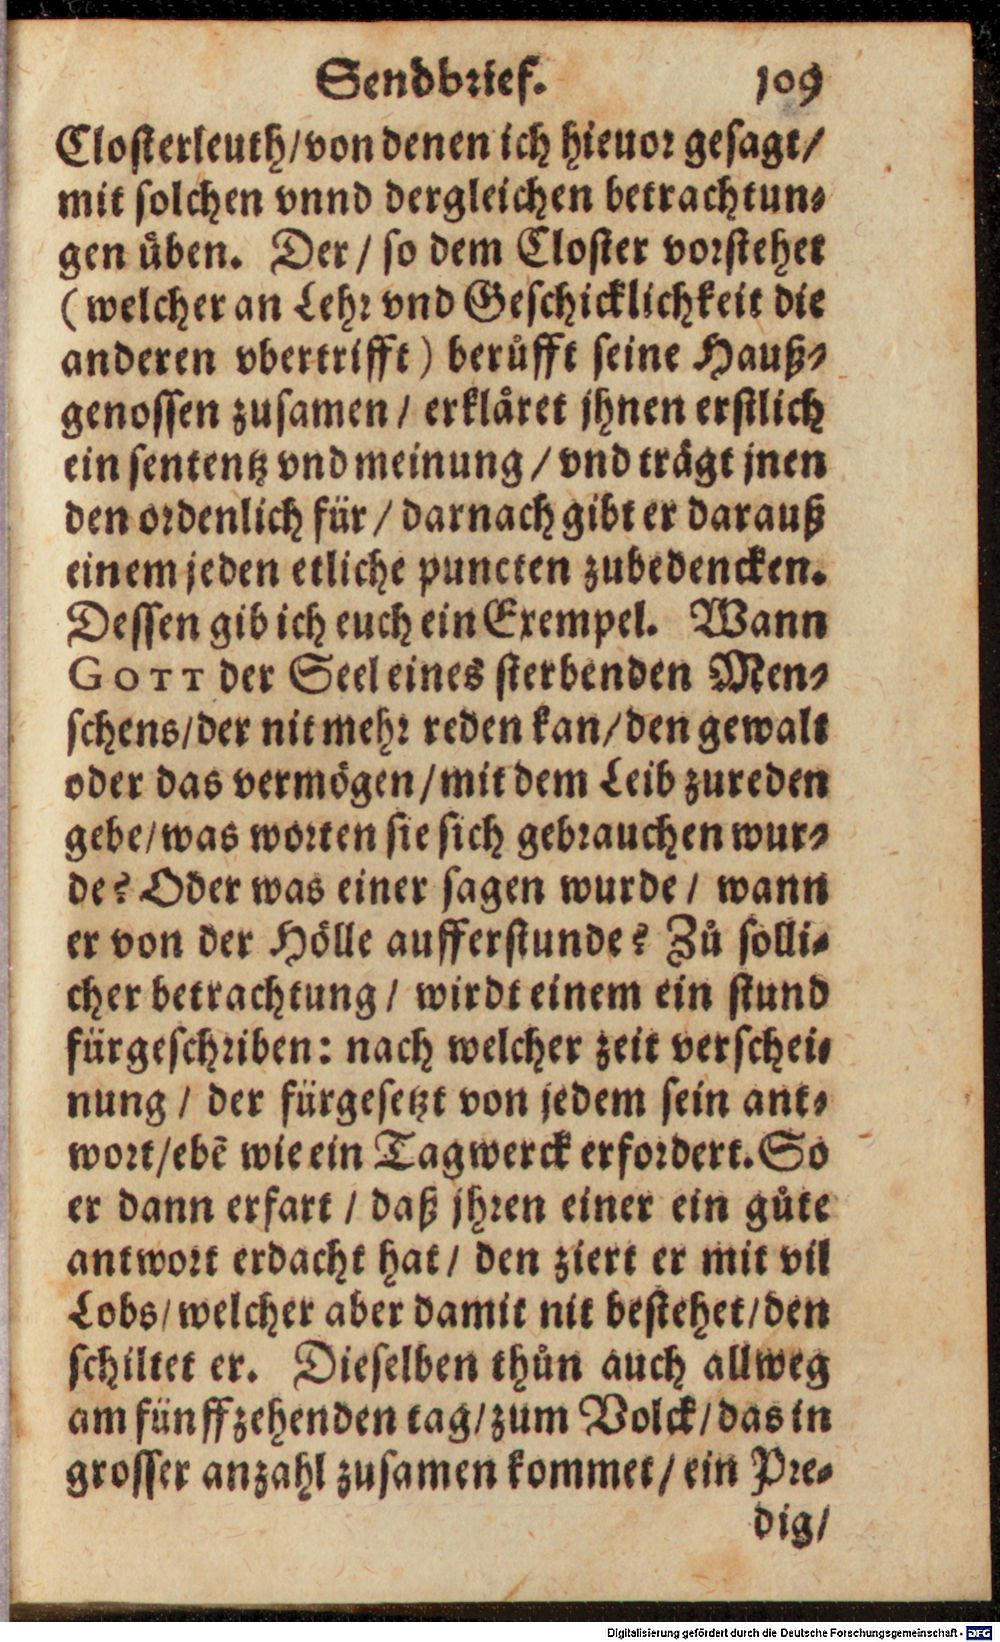 Sendbrief. 109
Closterleuth/von denen ich hieuor gesagt/
mit solchen vnnd dergleichen betrachtun-
gen üben. Der/ so dem Closter vorstehet
(welcher an Lehr vnd Geschicklichkeit die
anderen vbertrifft) berůfft seine Hauß-
genossen zusamen/ erkläret jhnen erstlich
ein sententz vnd meinung/ vnd trägt jnen
den ordenlich für/ darnach gibt er darauß
einem jeden etliche puncten zubedencken.
Dessen gib ich euch ein Exempel. Wann
GOTT der Seel eines sterbenden Men-
schens/der nit mehr reden kan/den gewalt
oder das vermögen/mit dem Leib zureden
gebe/was worten sie sich gebrauchen wur-
de? Oder was einer sagen wurde/ wann
er von der Hölle aufferstunde? Zů solli-
cher betrachtung/ wirdt einem ein stund
fürgeschriben: nach welcher zeit verschei-
nung/ der fürgesetzt von jedem sein ant-
wort/ebē wie ein Tagwerck erfordert. So
er dann erfart/ daß jhren einer ein gůte
antwort erdacht hat/ den ziert er mit vil
Lobs/welcher aber damit nit bestehet/den
schiltet er. Dieselben thůn auch allweg
am fünffzehenden tag/zum Volck/das in
grosser anzahl zusamen kommet/ ein Pre-
dig/
Digitalisierung gefördert durch die Deutsche Forschungsgemeinschaft - DFG